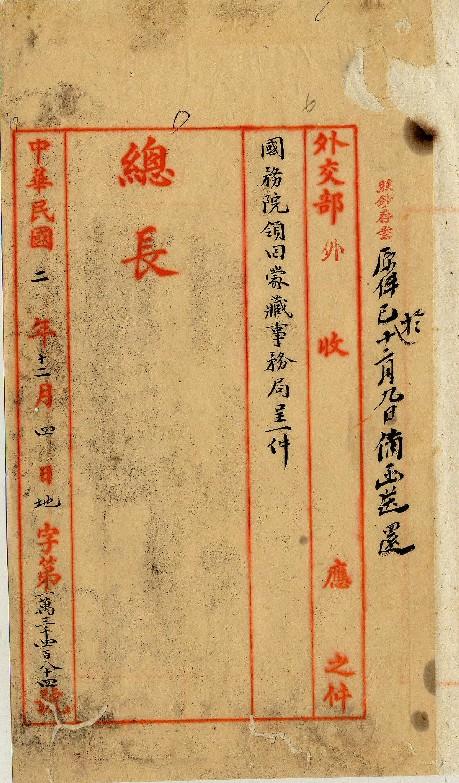 照鈔存案
原件已於十二月九日備函送還
外交部外收應之件
國務院領回蒙藏事務局呈一件
總長
中華民國二年十二月四日地字第一萬三千四百八十四號